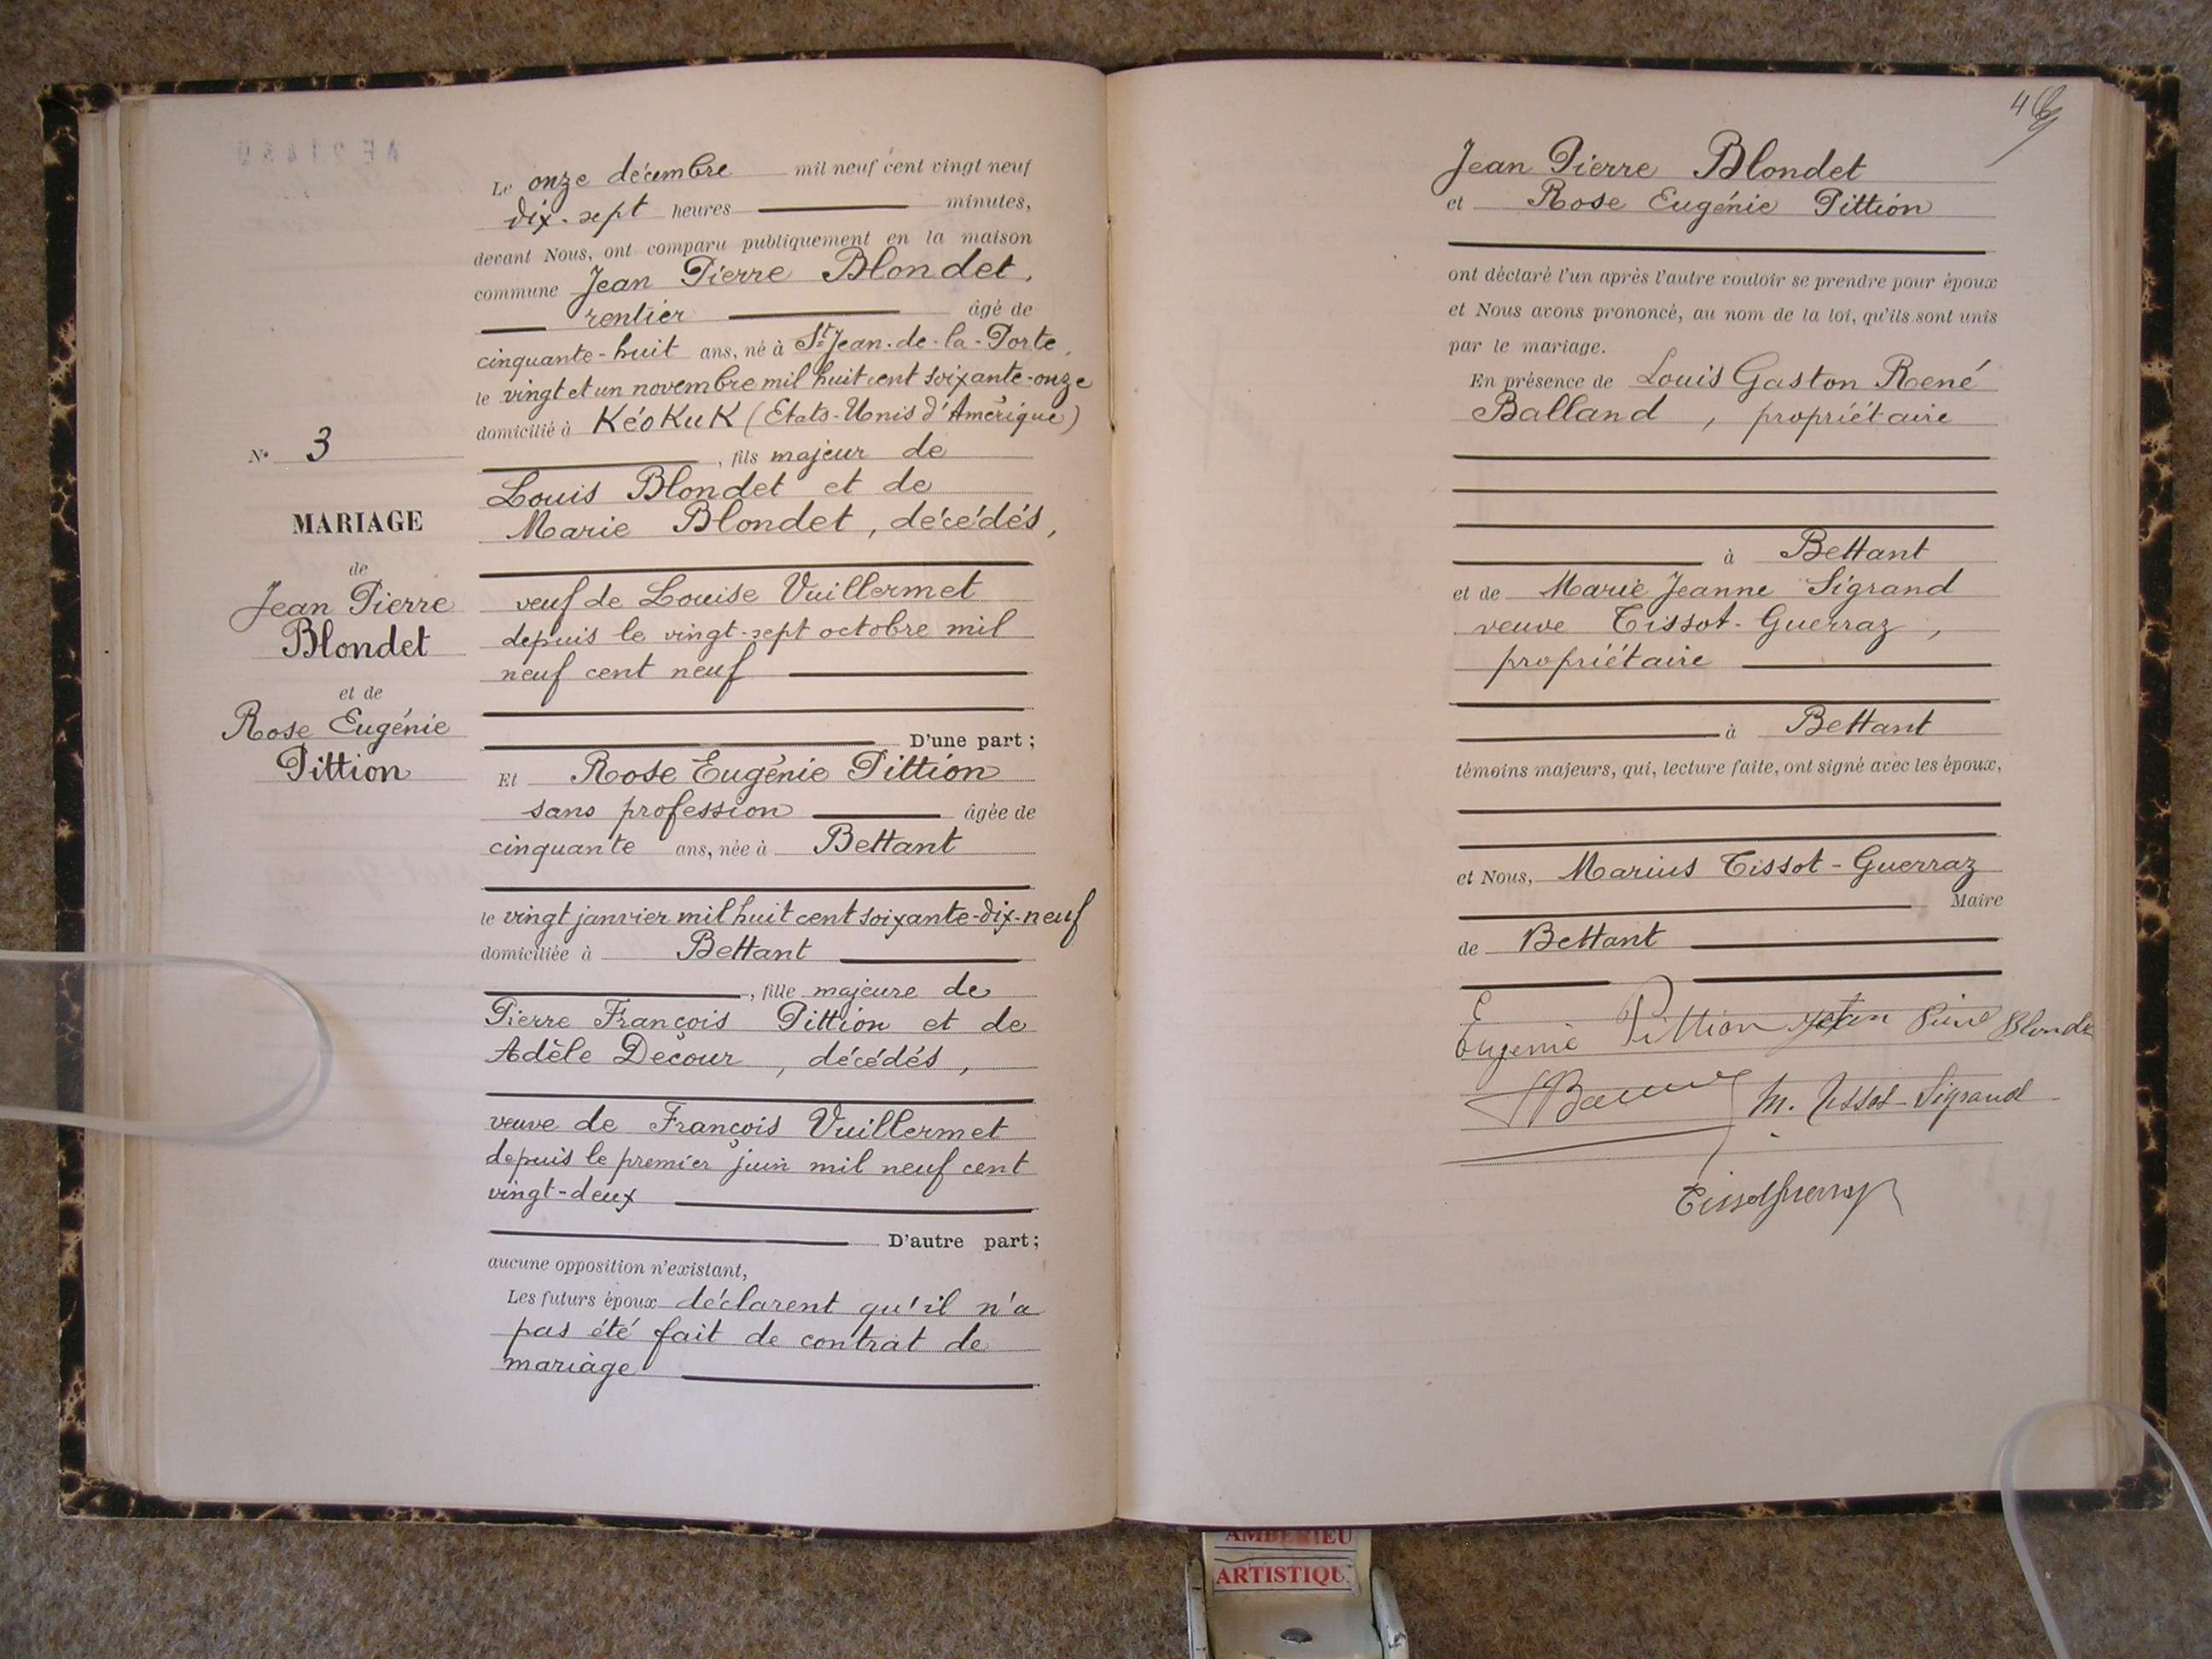 Le onze décembre mil neuf cent vingt neuf
dix-sept heures minutes,
devant Nous, ont comparu publiquement en la maison
commune Jean Pierre Blondet,
rentier âgé de
cinquante-huit ans, né à St Jean-de-la-Porte,
le vingt et un novembre mil huit cent soixante-onze
domicilié à KéoKuK (Etats-Unis d'Amérique)
, fils majeur de
Louis Blondet et de
Marie Blondet, décédés,
veuf de Louise Vuillermet
depuis le vingt-sept octobre mil
neuf cent neuf
D'une part;
Et Rose Eugénie Pittion
sans profession âgée de
cinquante ans, née à Bettant
le vingt janvier mil huit cent soixante-dix-neuf
domiciliée à Bettant
, fille majeure de
Pierre François Pittion et de
Adèle Deçour, décédés,
veuve de François Vuillermet
depuis le premier juin mil neuf cent
vingt-deux
D'autre part;
aucune opposition n'existant,
Les futurs époux déclarent qu'il n'a
pas été fait de contrat de
mariage
N° 3
MARIAGE
de
Jean Pierre
Blondet
et de
Rose Eugénie
Pittion
Jean Pierre Blondet
et Rose Eugénie Pittion
ont déclaré l'un après l'autre vouloir se prendre pour époux
et Nous avons prononcé, au nom de la loi, qu'ils sont unis
par le mariage.
En présence de Louis Gaston René
Balland, propriétaire
à Bettant
et de Marie Jeanne Sigrand
veuve Tissot-Guerraz,
propriétaire
à Bettant
témoins majeurs, qui, lecture faite, ont signé avec les époux,
et Nous, Marius Tissot-Guerraz
Maire
de Bettant
Eugenie Pittion Jean Pierre Blondet
M. Tissot-Sigrand
Tissot Guerraz
AMBERIEU
ARTISTIQU